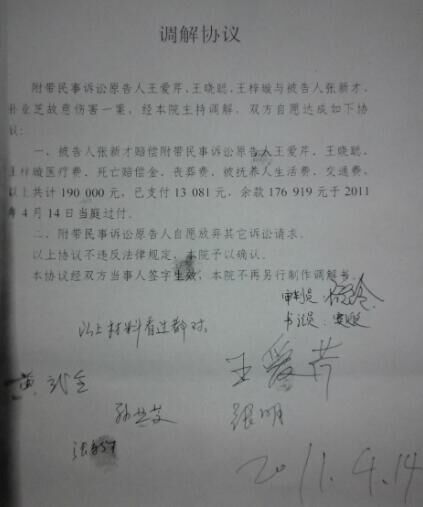 调解协议
附带民事诉讼原告人王爱芹、王晓聪、王梓嫙与被告人张新才、
孙业芝故意伤害一案，经本院主持调解，双方自愿达成如下协
议：
一、被告人张新才赔偿附带民事诉讼原告人王爱芹、王晓聪、
王梓嫙医疗费、死亡赔偿金、丧葬费、被抚养人生活费、交通费，
以上共计 190 000 元，已支付 13 081 元，余款 176 919 元于 2011
年 4 月 14 日当庭过付。
二、附带民事诉讼原告人自愿放弃其它诉讼请求。
以上协议不违反法律规定，本院予以确认。
本协议经双方当事人签字生效，本院不再另行制作调解书。
审判员：
书记员：
以上材料看过都对.
王爱芹
黄
孙业芝
张明
2011.4.14